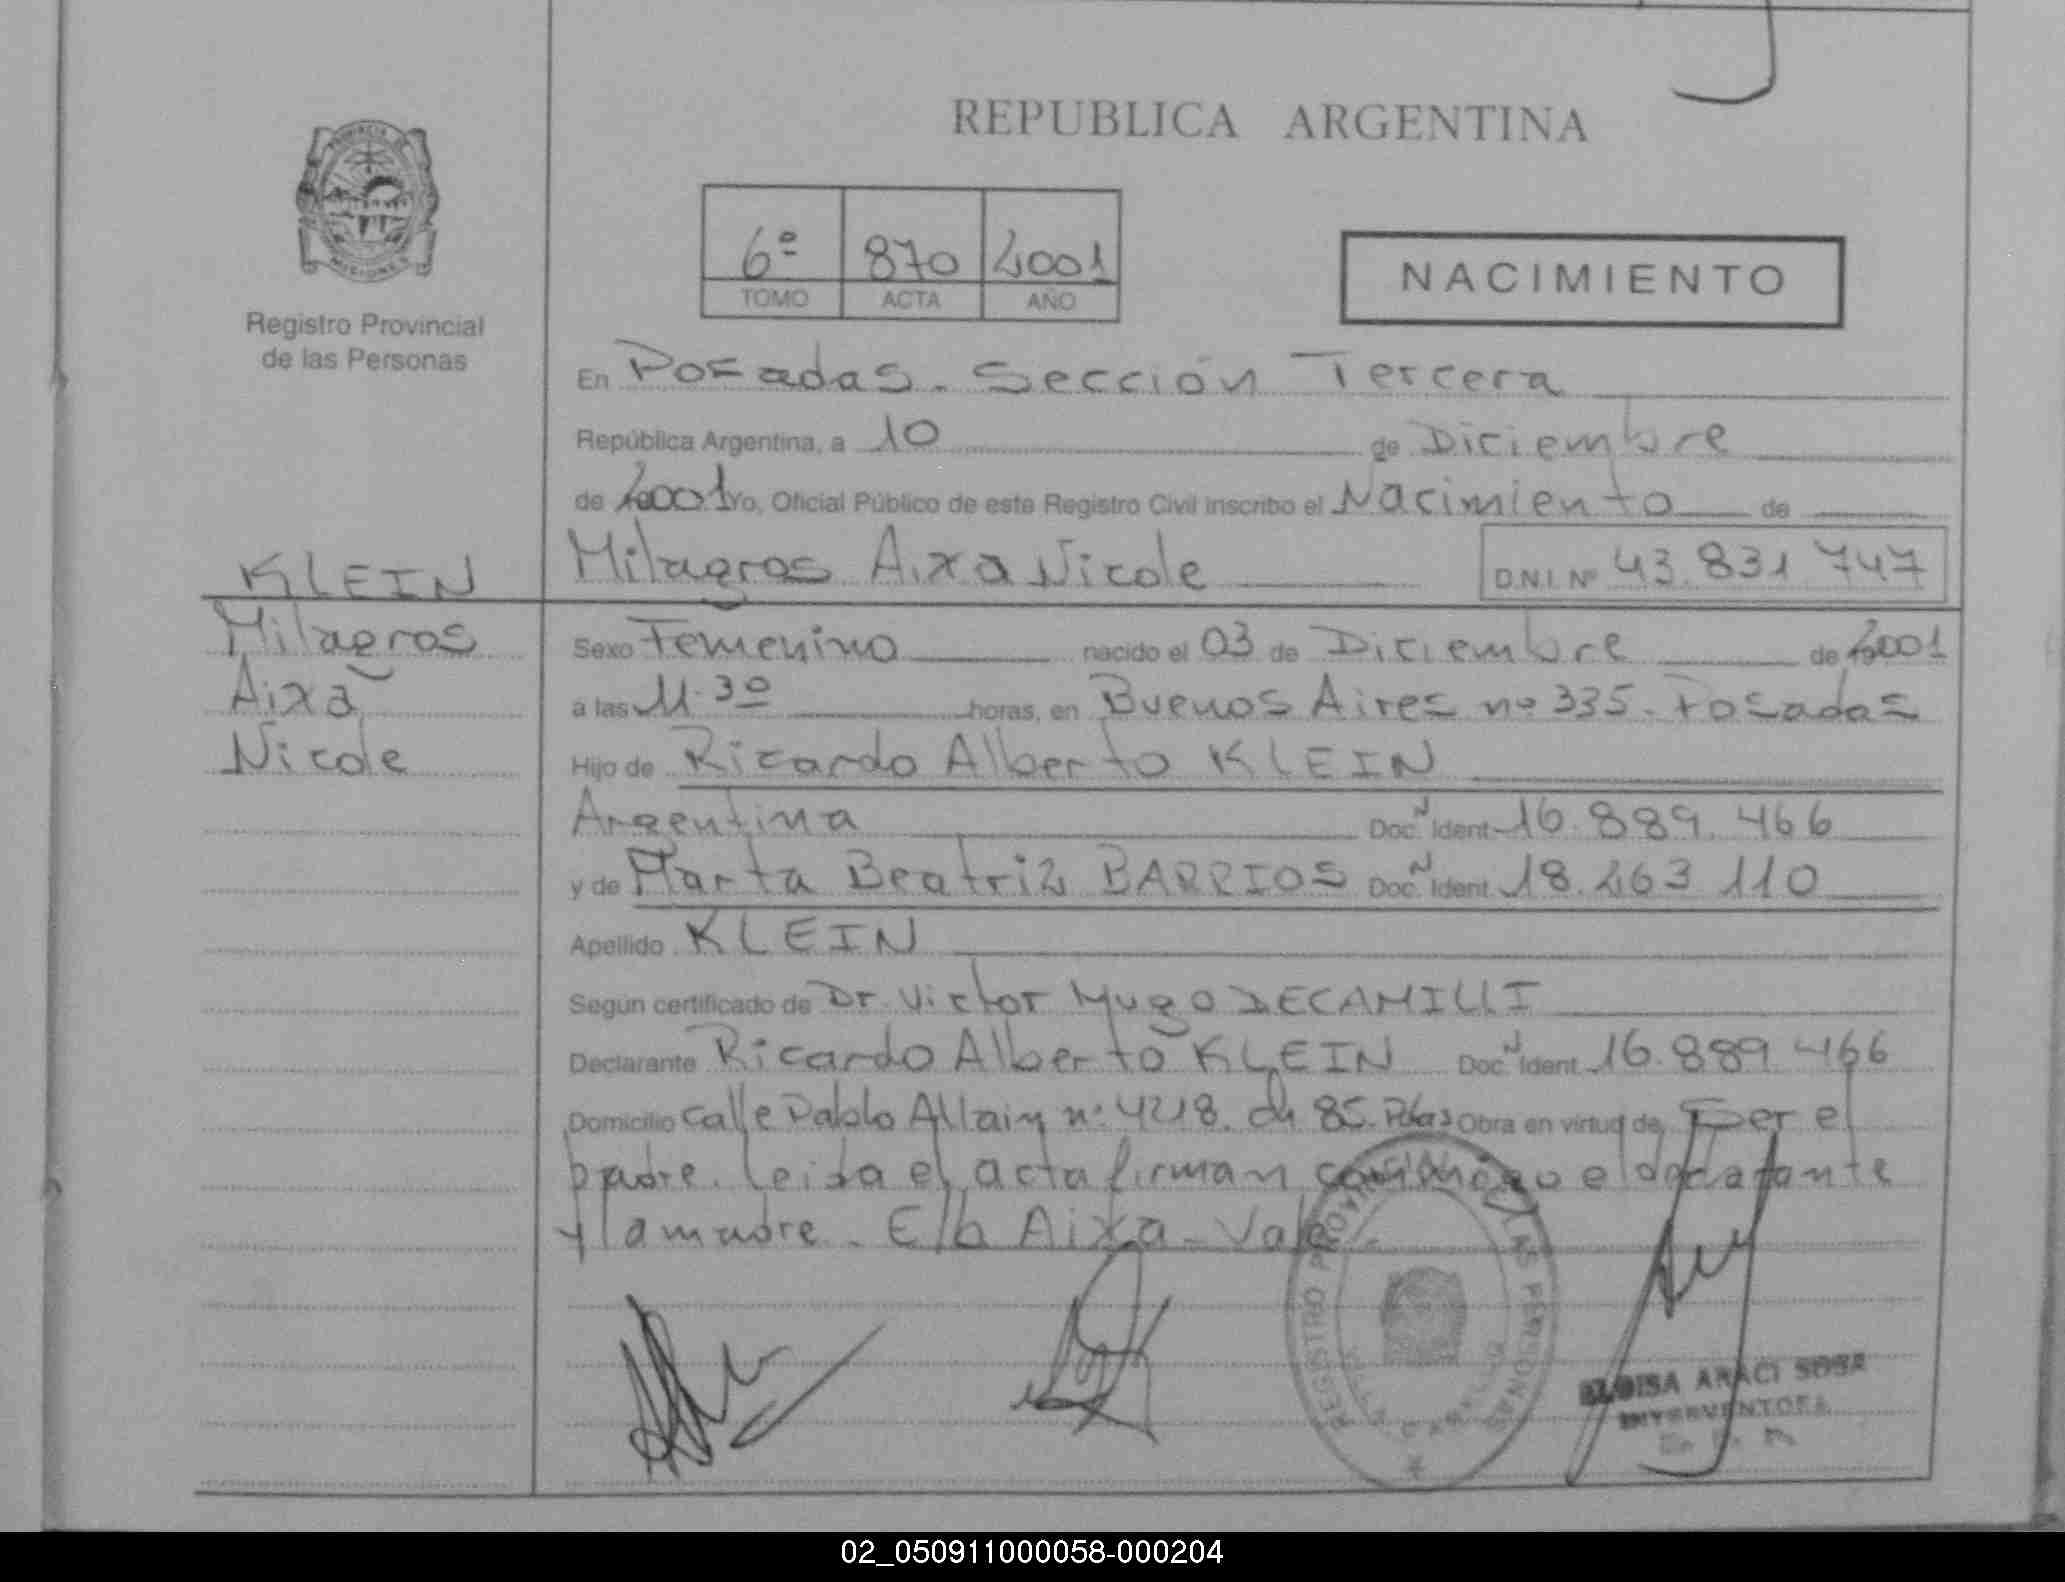 REPUBLICA ARGENTINA
PROVINCIA DE MISIONES
Registro Provincial
de las Personas
6º 870 2001
TOMO ACTA AÑO
NACIMIENTO
En Posadas. Sección Tercera
República Argentina, a 10 de Diciembre
de 2001 Yo, Oficial Público de este Registro Civil inscribo el Nacimiento de
Milagros Aixa Nicole D.N.I. Nº 43.831.747
KLEIN
Milagros
Aixa
Nicole
Sexo Femenino nacido el 03 de Diciembre de 2001
a las 11.30 horas, en Buenos Aires nº 335. Posadas
Hijo de Ricardo Alberto KLEIN
Argentina Doc. N Ident 16.889.466
y de Marta Beatriz BARRIOS Doc. N Ident. 18.263.110
Apellido KLEIN
Según certificado de Dr. Victor Hugo DECAMILLI
Declarante Ricardo Alberto KLEIN Doc. N Ident. 16.889.466
Domicilio calle Pablo Allain nº 4218. ch 85. Pdas Obra en virtud de Ser el
padre. Leida el acta firman conmigo el declarante
y la madre. E/b Aixa - Vale.
REGISTRO PROVINCIAL DE LAS PERSONAS
VILLA CABELLO
ELOISA ARACI SOSA
INTERVENTORA
02_050911000058-000204